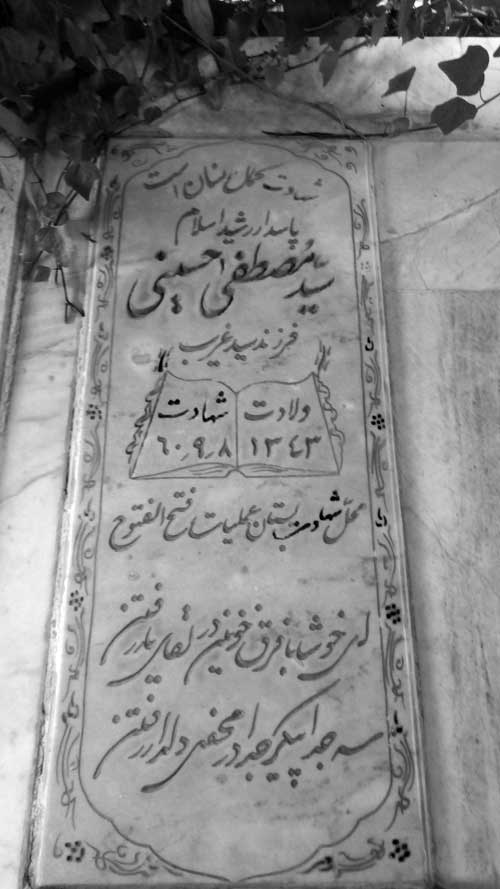 شهادت کمال انسان است
پاسدار رشید اسلام
سید مصطفی حسینی
فرزند سید غریب
ولادت شهادت
۱۳۴۳ ۶۰٫۹٫۸
محل شهادت بستان عملیات فتح الفتوح
ای خوشا با فرق خونین در لقای یار رفتن
سر جدا پیکر جدا در محفل دلدار رفتن